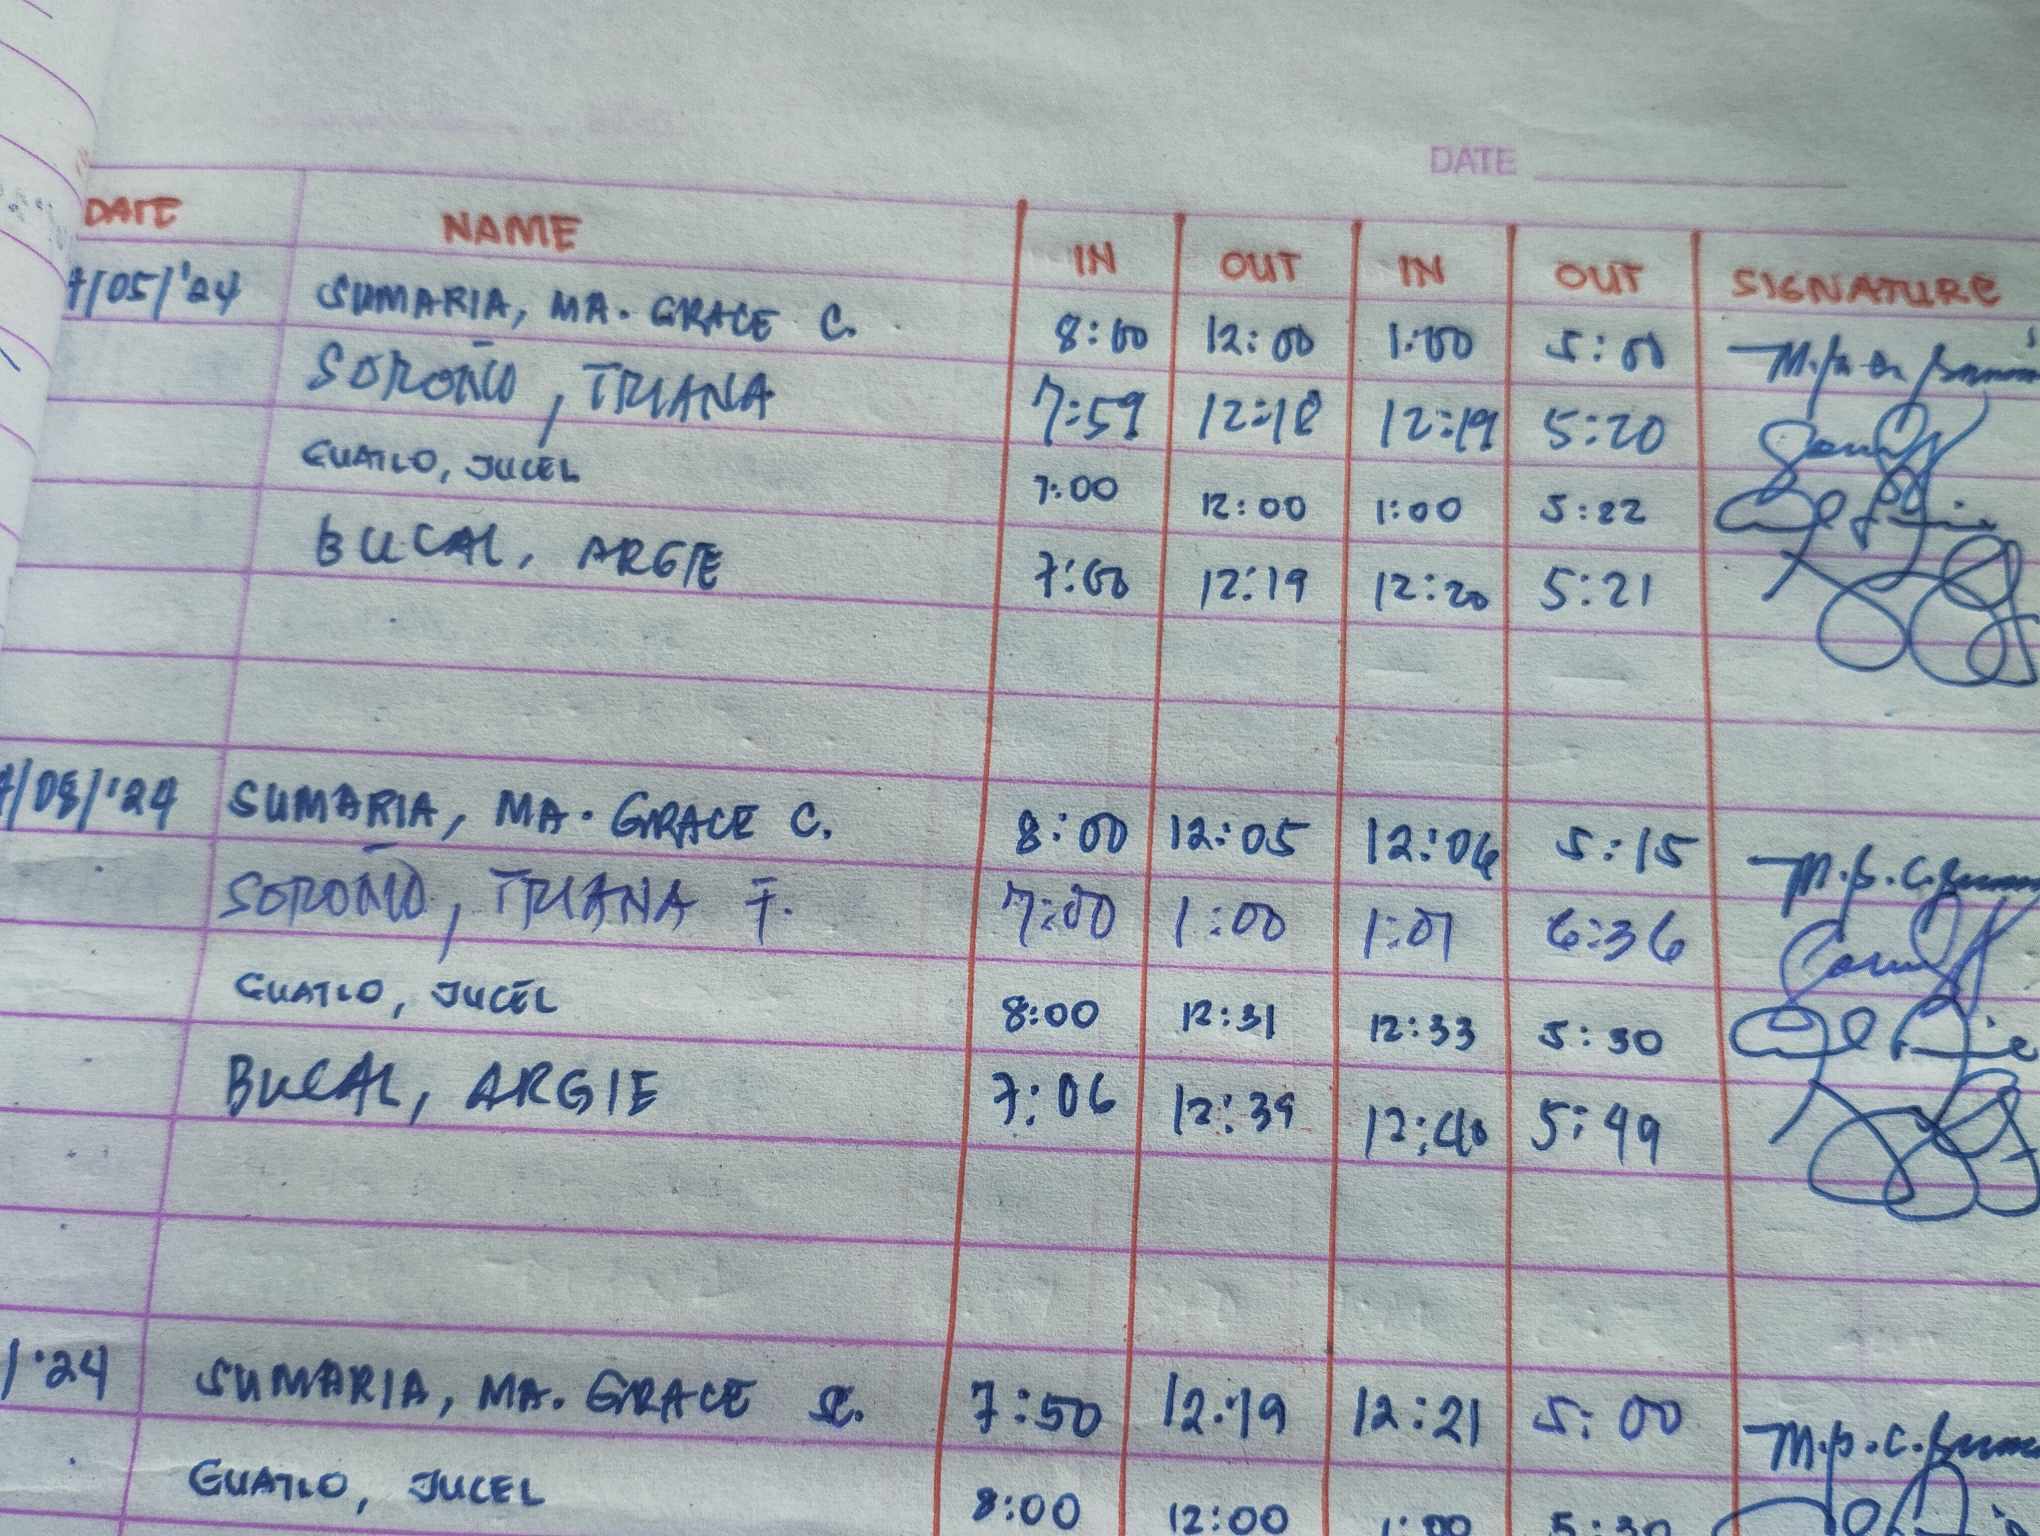 DATE
DATE NAME IN OUT IN OUT SIGNATURE
7/05/'24 SUMARIA, MA. GRACE C. 8:00 12:00 1:00 5:00
SOROÑO, TRIANA 7:59 12:18 12:19 5:20
GUATLO, JUCEL 7:00 12:00 1:00 5:22
BUCAL, ARGIE 7:00 12:19 12:20 5:21
7/08/'24 SUMARIA, MA. GRACE C. 8:00 12:05 12:06 5:15
SOROÑO, TRIANA F. 7:00 1:00 1:01 6:36
GUATLO, JUCEL 8:00 12:31 12:33 5:30
BUCAL, ARGIE 7:06 12:39 12:40 5:49
/'24 SUMARIA, MA. GRACE C. 7:50 12:19 12:21 5:00
GUATLO, JUCEL 8:00 12:00 1:00 5:30